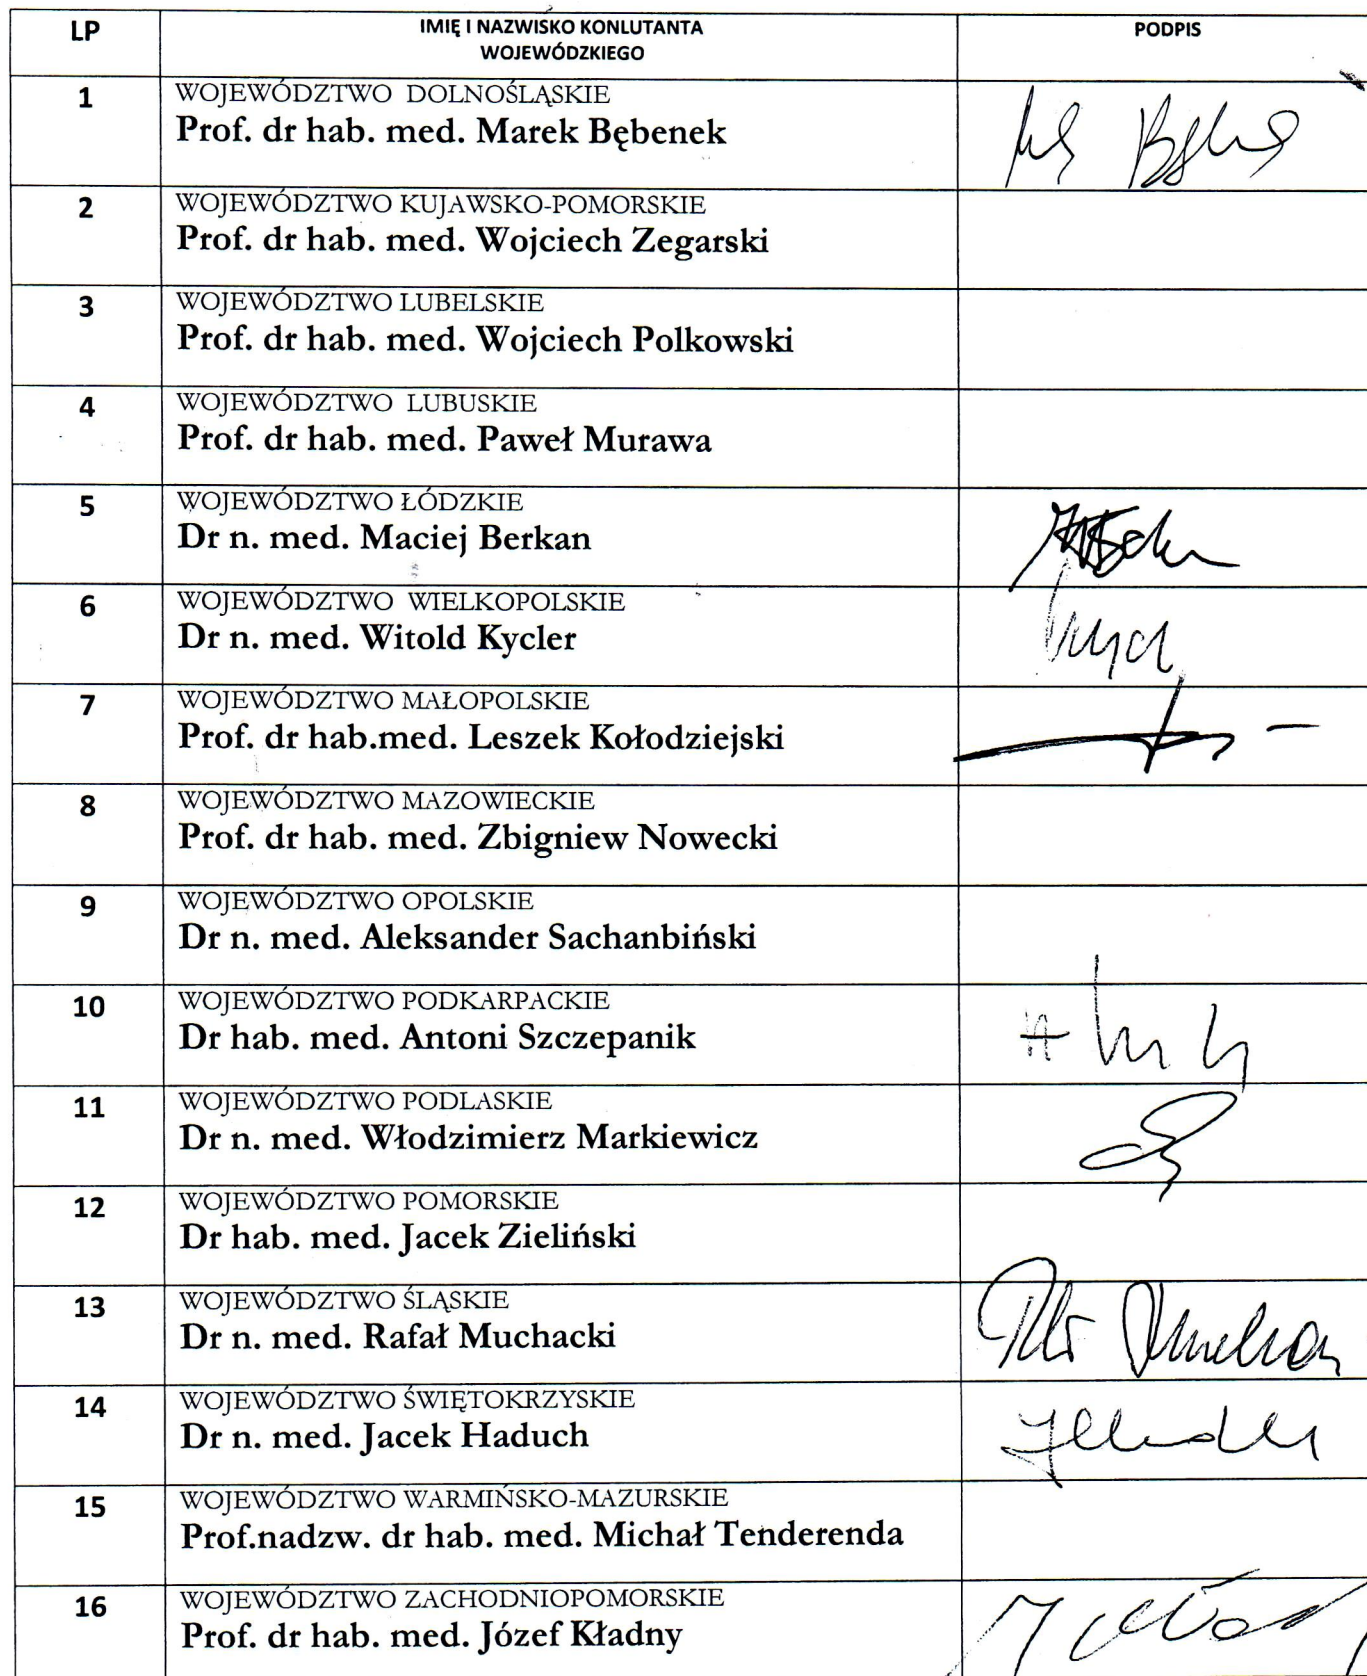 LP IMIĘ I NAZWISKO KONLUTANTA PODPIS
WOJEWÓDZKIEGO
1 WOJEWÓDZTWO DOLNOŚLĄSKIE
Prof. dr hab. med. Marek Bębenek
2 WOJEWÓDZTWO KUJAWSKO-POMORSKIE
Prof. dr hab. med. Wojciech Zegarski
3 WOJEWÓDZTWO LUBELSKIE
Prof. dr hab. med. Wojciech Polkowski
4 WOJEWÓDZTWO LUBUSKIE
Prof. dr hab. med. Paweł Murawa
5 WOJEWÓDZTWO ŁÓDZKIE
Dr n. med. Maciej Berkan
6 WOJEWÓDZTWO WIELKOPOLSKIE
Dr n. med. Witold Kycler
7 WOJEWÓDZTWO MAŁOPOLSKIE
Prof. dr hab.med. Leszek Kołodziejski
8 WOJEWÓDZTWO MAZOWIECKIE
Prof. dr hab. med. Zbigniew Nowecki
9 WOJEWÓDZTWO OPOLSKIE
Dr n. med. Aleksander Sachanbiński
10 WOJEWÓDZTWO PODKARPACKIE
Dr hab. med. Antoni Szczepanik
11 WOJEWÓDZTWO PODLASKIE
Dr n. med. Włodzimierz Markiewicz
12 WOJEWÓDZTWO POMORSKIE
Dr hab. med. Jacek Zieliński
13 WOJEWÓDZTWO ŚLĄSKIE
Dr n. med. Rafał Muchacki
14 WOJEWÓDZTWO ŚWIĘTOKRZYSKIE
Dr n. med. Jacek Haduch
15 WOJEWÓDZTWO WARMIŃSKO-MAZURSKIE
Prof.nadzw. dr hab. med. Michał Tenderenda
16 WOJEWÓDZTWO ZACHODNIOPOMORSKIE
Prof. dr hab. med. Józef Kładny